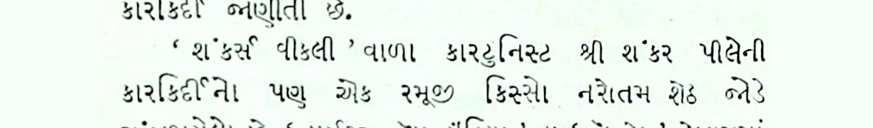 કારકિર્દી જાણીતી છે.
‘ શંકર્સ વીકલી ’ વાળા કારટુનિસ્ટ શ્રી શંકર પીલેની
કારકિર્દીનો પણ એક રમૂજી કિસ્સો નરોતમ શેઠ જોડે